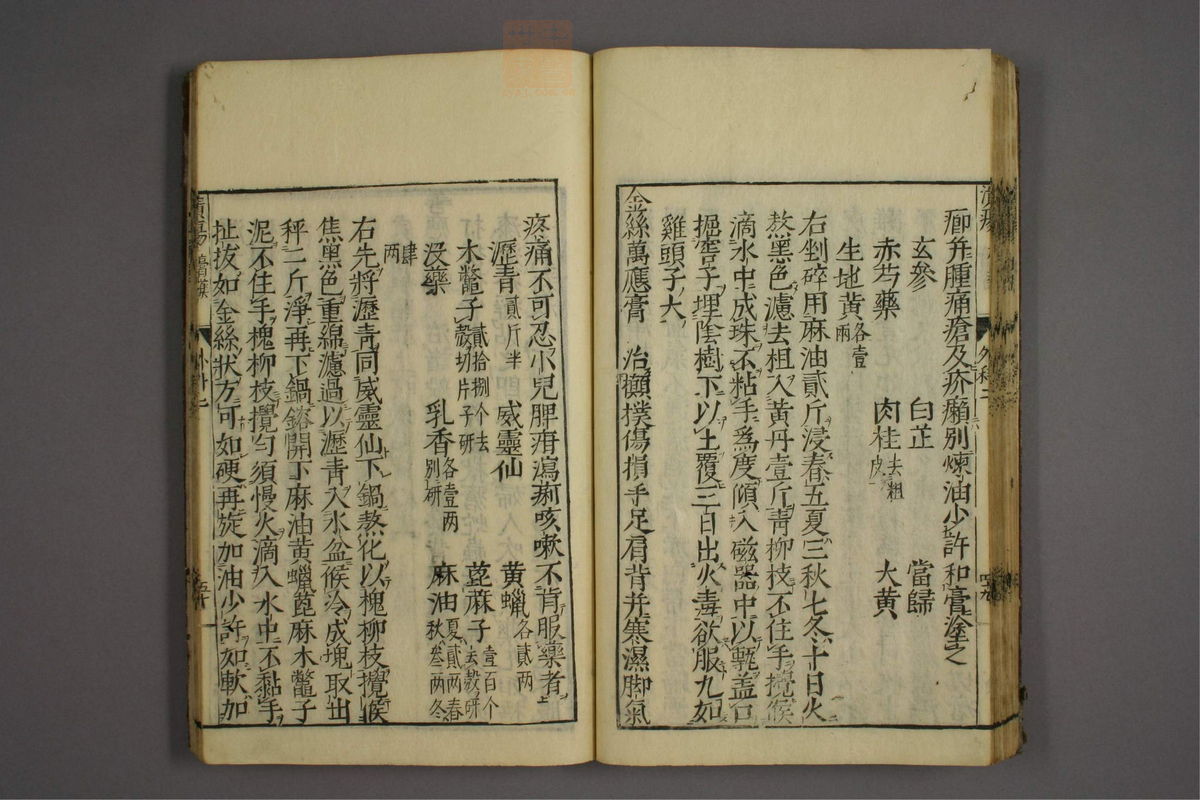 癤并腫痛瘡及疥癩別煉油少許和膏塗之
玄參　白芷　當歸
赤芍藥　肉桂去粗皮　大黃
生地黃各壹兩
右剉碎用麻油貳斤浸春五夏三秋七冬十日火
熬黑色濾去柤入黃丹壹斤靑柳枝不住手攪候
滴水中成珠不粘手爲度傾入磁器中以甎盖口
掘窖子埋陰樹下以土覆三日出火毒欲服丸如
雞頭子大
金絲萬應膏　治攧撲傷損手足肩背并寒濕脚氣
疼痛不可忍小兒脾疳瀉痢咳嗽不肯服藥者
瀝靑貳斤半　威靈仙　黃蠟各貳兩
木鱉子貳拾捌个去殼切片子研　蓖麻子壹百个去殼研
沒藥　乳香各壹两別研　麻油夏貳两春秋叁两冬
肆两
右先將瀝靑同威靈仙下鍋熬化以槐柳枝攪候
焦黑色重綿濾過以瀝靑入水盆候冷成塊取出
秤二斤淨再下鍋鎔開下麻油黃蠟蓖麻木鱉子
泥不住手槐柳枝攪勻須慢火滴入水中不黏手
扯拔如金絲狀方可如硬再旋加油少許如軟加